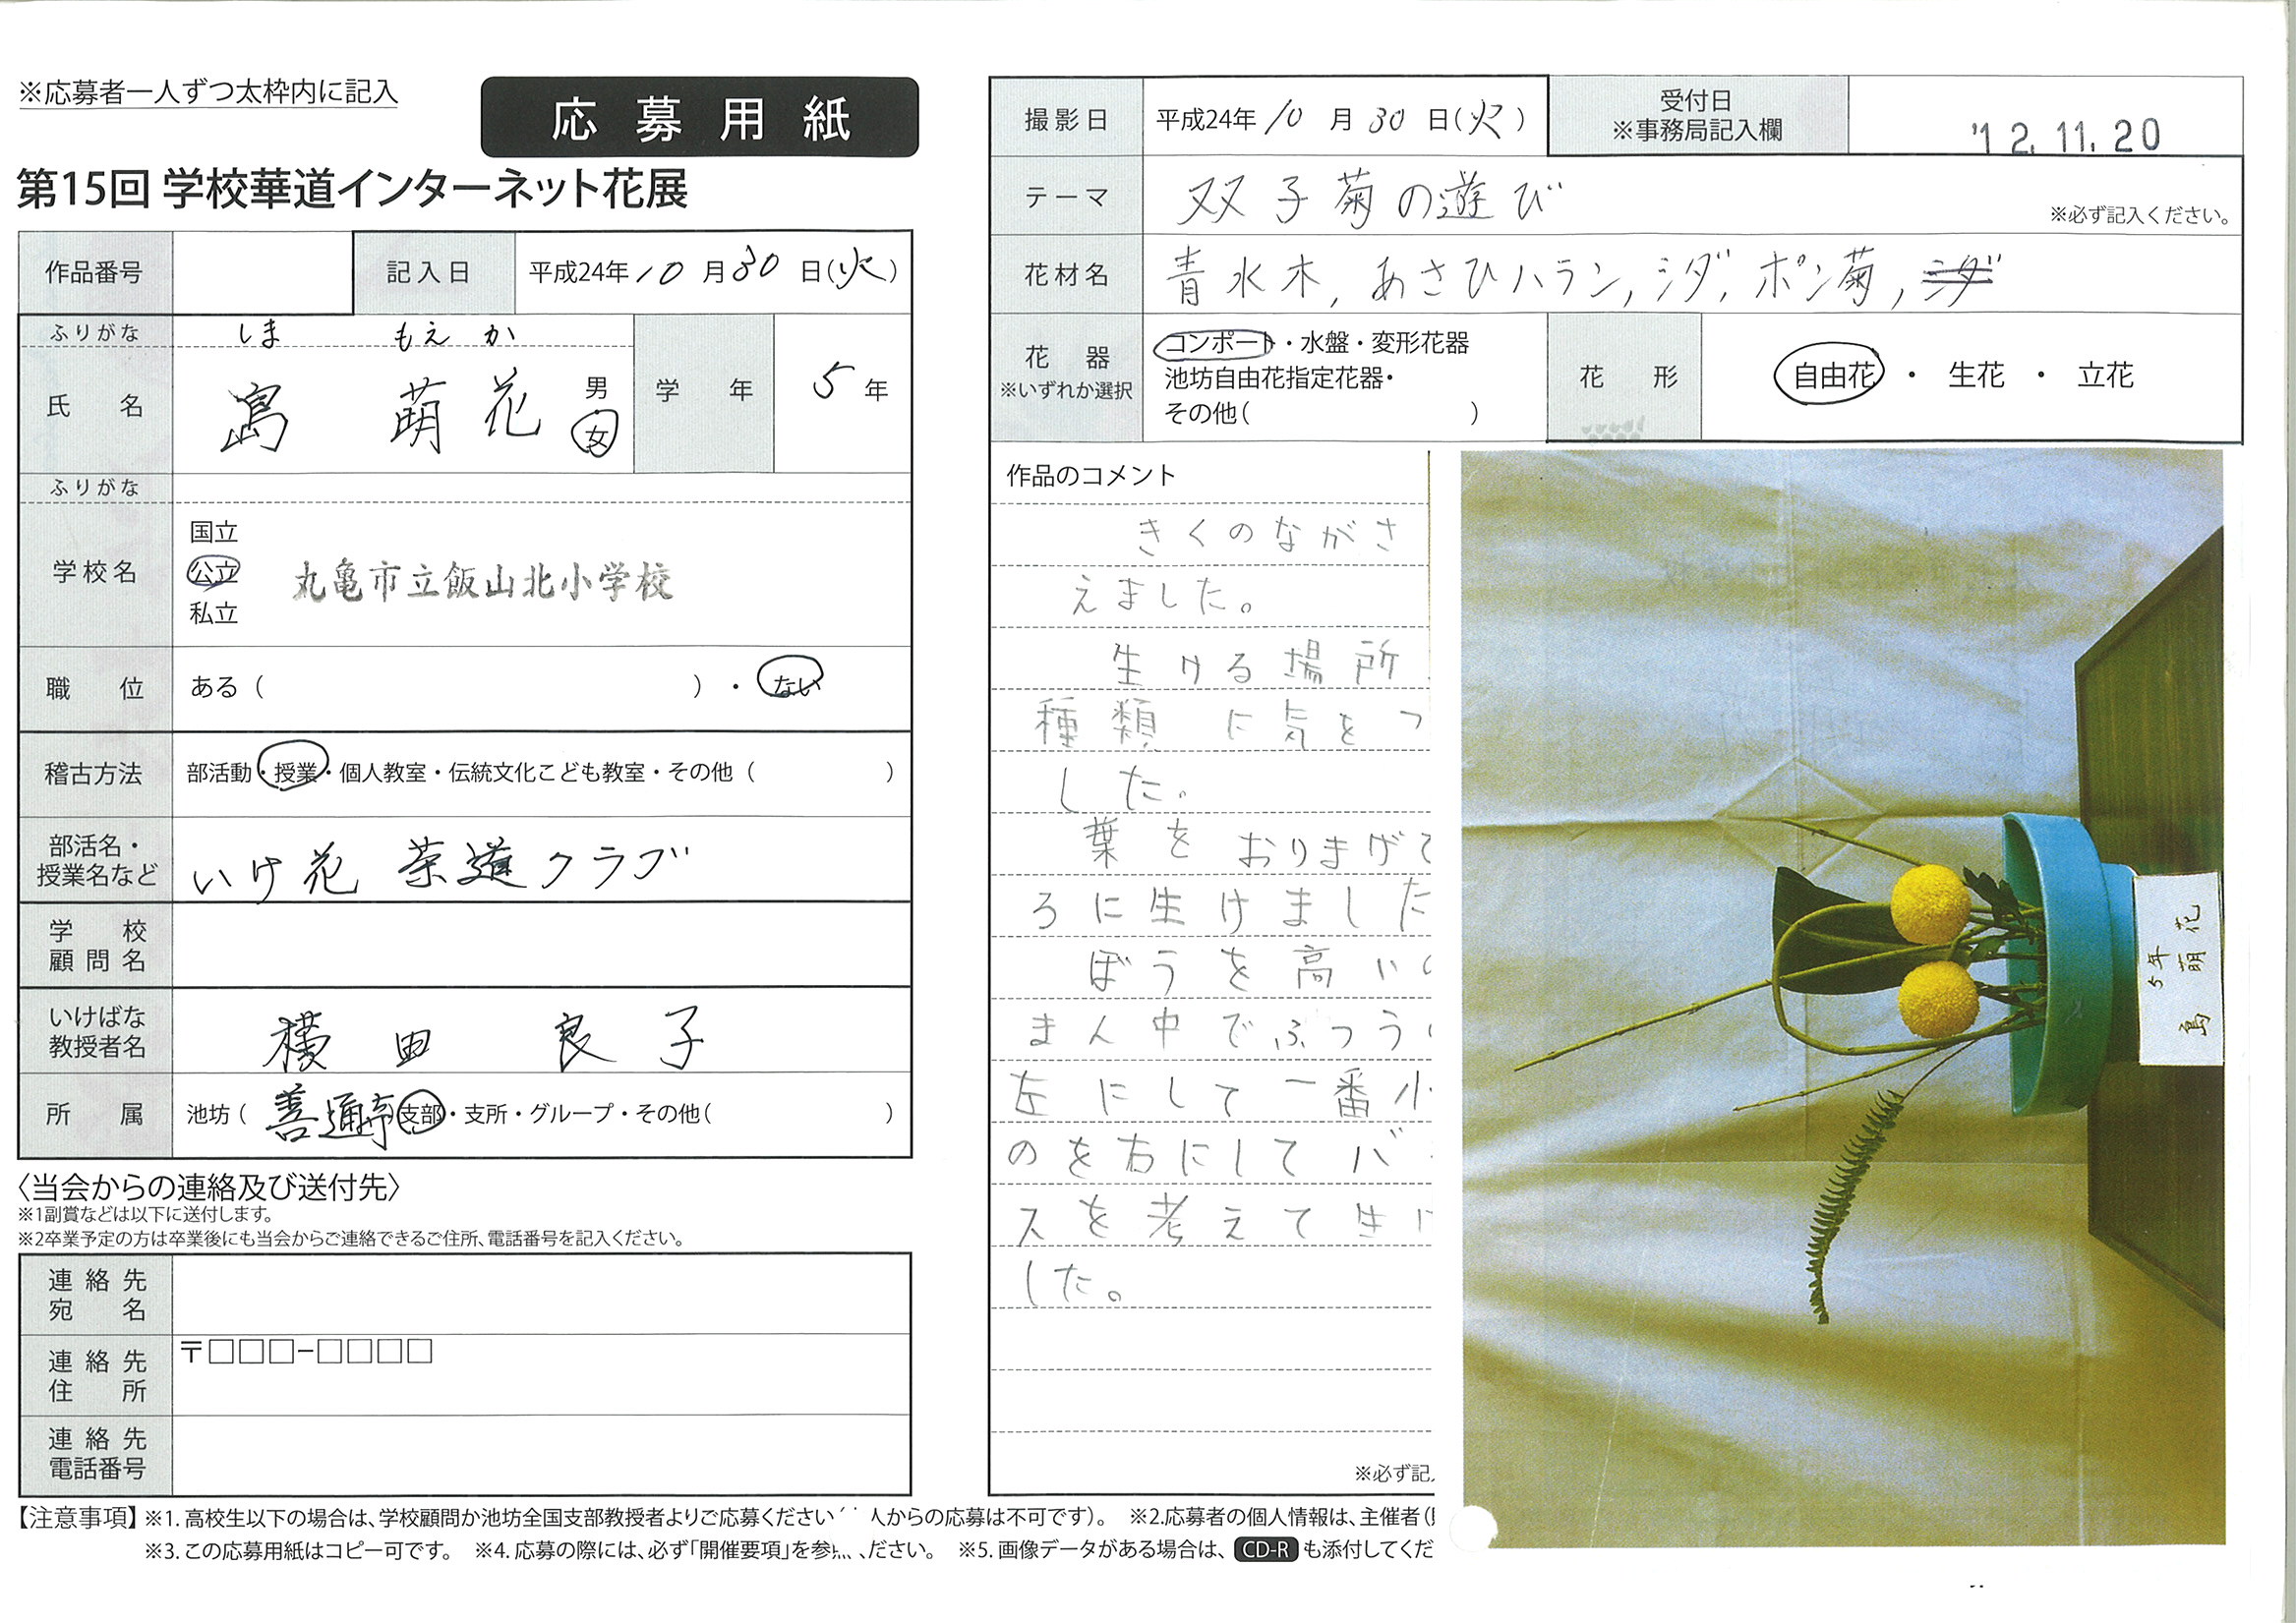 ※応募者一人ずつ太枠内に記入
応募用紙
第15回 学校華道インターネット花展
作品番号
記入日 平成24年10月30日(火)
ふりがな しま もえか
氏名 島 萌花 男 女
学年 5年
ふりがな
学校名 国立 公立 私立 丸亀市立飯山北小学校
職位 ある( )・ない
稽古方法 部活動・授業・個人教室・伝統文化こども教室・その他( )
部活名・授業名など いけ花 茶道クラブ
学校顧問名
いけばな教授者名 横田 良子
所属 池坊(善通寺支部・支所・グループ・その他( )
〈当会からの連絡及び送付先〉
※1副賞などは以下に送付します。
※2卒業予定の方は卒業後にも当会からご連絡できるご住所、電話番号を記入ください。
連絡先宛名
連絡先住所 〒□□□-□□□□
連絡先電話番号
撮影日 平成24年10月30日(火)
受付日 ※事務局記入欄 '12.11.20
テーマ 双子菊の遊び ※必ず記入ください。
花材名 青水木, あさひハラン, シダ, ポン菊, シダ
花器 ※いずれか選択 コンポート・水盤・変形花器
池坊自由花指定花器・
その他( )
花形 自由花・生花・立花
作品のコメント
きくのながさ
えました。
生ける場所
種類に気をつ
した。
葉をおりまげて
ろに生けました
ぼうを高いの
まん中でふつう
左にして一番小
のを右にしてバ
スを考えて生け
した。
※必ず記
5年
島 萌花
【注意事項】※1. 高校生以下の場合は、学校顧問か池坊全国支部教授者よりご応募ください 人からの応募は不可です)。 ※2.応募者の個人情報は、主催者(
※3. この応募用紙はコピー可です。 ※4. 応募の際には、必ず「開催要項」を参 ださい。 ※5. 画像データがある場合は、CD-Rも添付してくだ